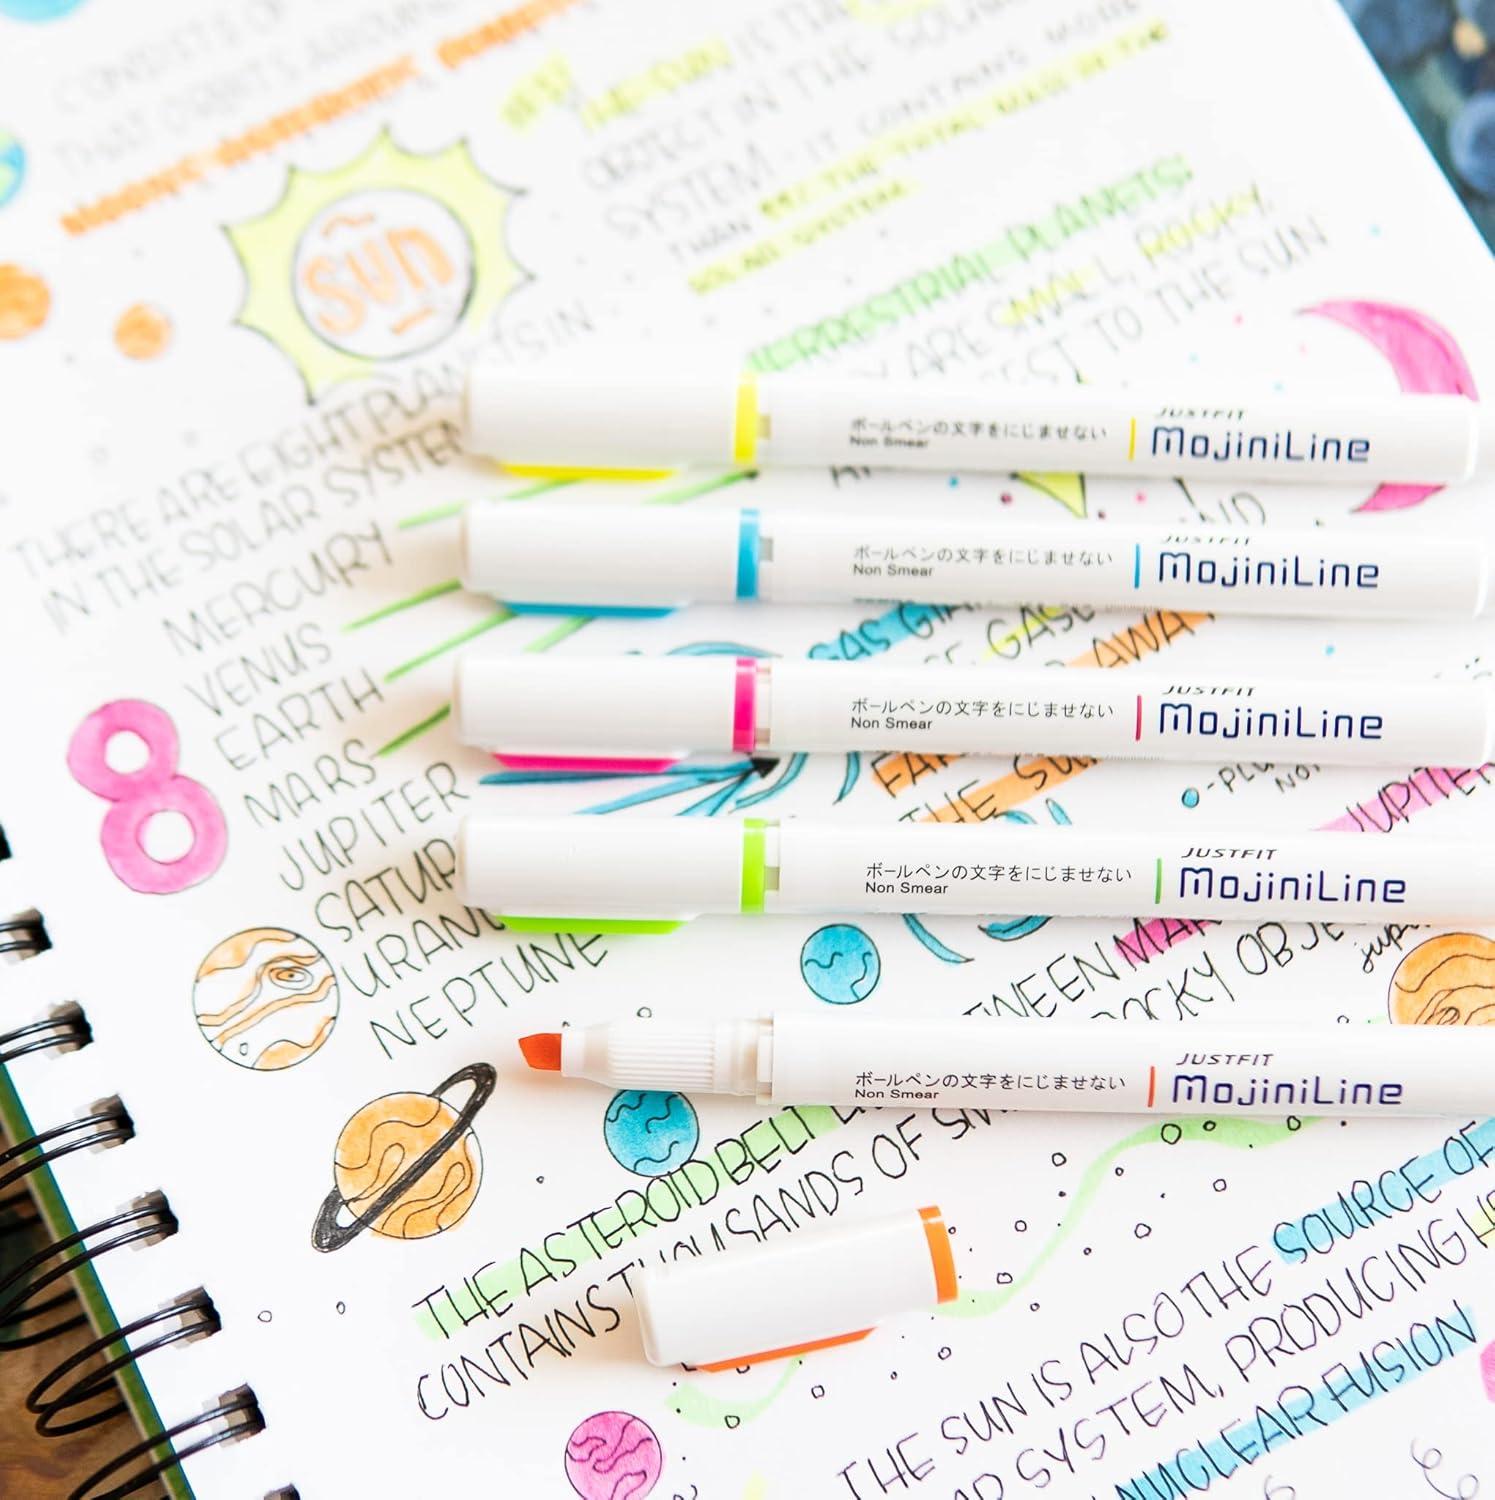 CONSISTS OF
THAT ORBITS AROUND
THE SUN IS THE
OBJECT IN THE SOLAR
SYSTEM. IT CONTAINS MORE
THAN 99% THE TOTAL MASS IN THE
SOLAR SYSTEM.
SUN
TERRESTRIAL PLANETS:
ARE SMALL, ROCKY,
TO THE SUN
THERE ARE EIGHT PLANETS IN
IN THE SOLAR SYSTEM
MERCURY
VENUS
EARTH
MARS
JUPITER
SATUR
URANU
NEPTUNE
8
JUSTFIT
ボールペンの文字をにじませない
Non Smear
MojiniLine
JUSTFIT
ボールペンの文字をにじませない
Non Smear
MojiniLine
GAS GIA
GASE
AWAY
JUSTFIT
ボールペンの文字をにじませない
Non Smear
MojiniLine
FAR
THE SU
JUPITER
JUSTFIT
ボールペンの文字をにじませない
Non Smear
MojiniLine
TWEEN MAR
ROCKY OBJE
JUSTFIT
ボールペンの文字をにじませない
Non Smear
MojiniLine
THE ASTEROID BELT
CONTAINS THOUSANDS OF SM
THE SUN IS ALSO THE SOURCE OF
SYSTEM, PRODUCING HE
NUCLEAR FUSION